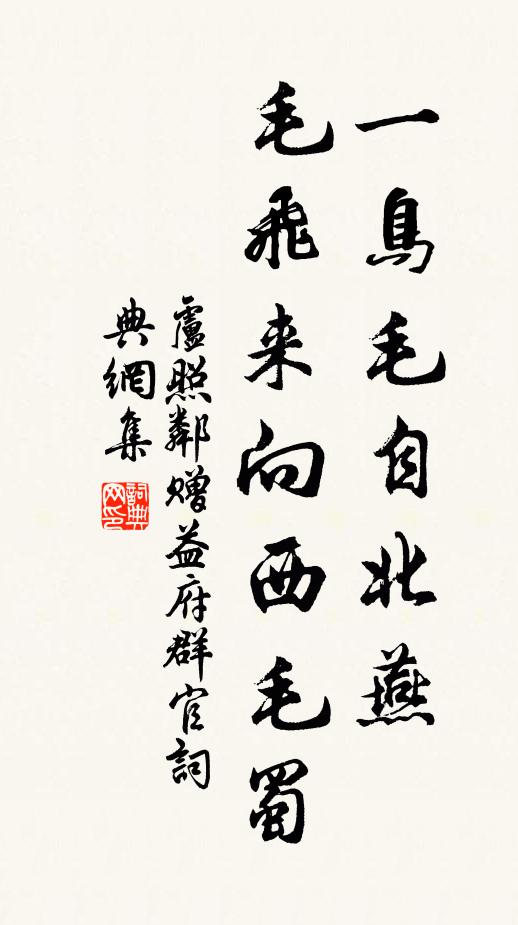 一鳥毛自北燕
毛飛来向西毛蜀
盧照鄰贈益府群官詞
典網集
詞典
网印